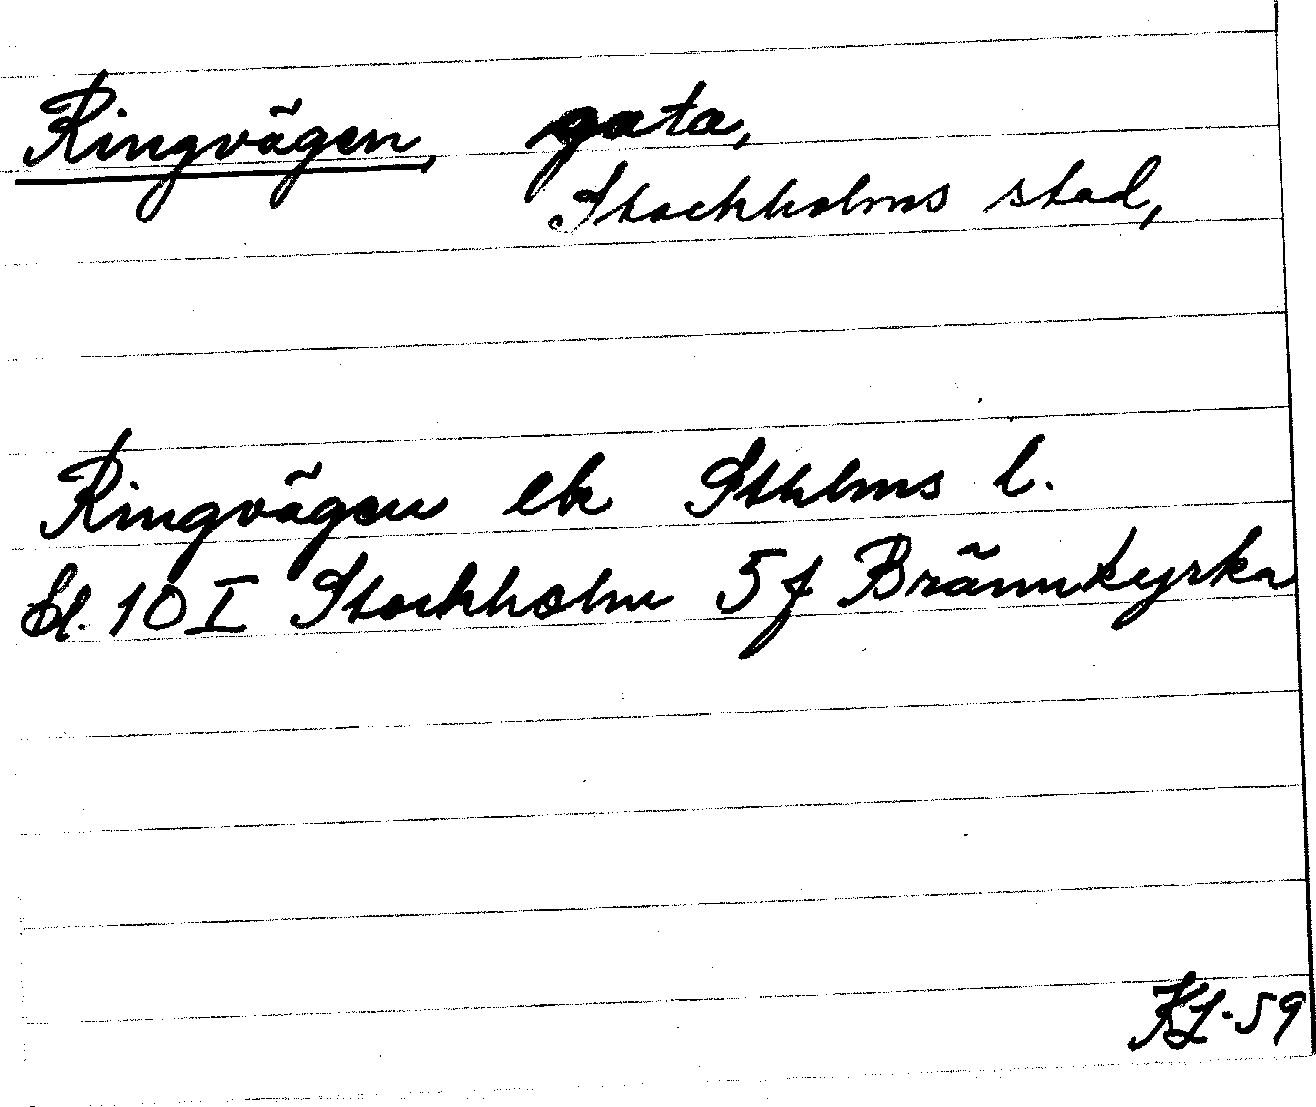 Ringvägen, gata,
Stockholms stad,
Ringvägen ek Sthlms l.
bl. 10 I Stockholm 5 f Brännkyrka
KL-59